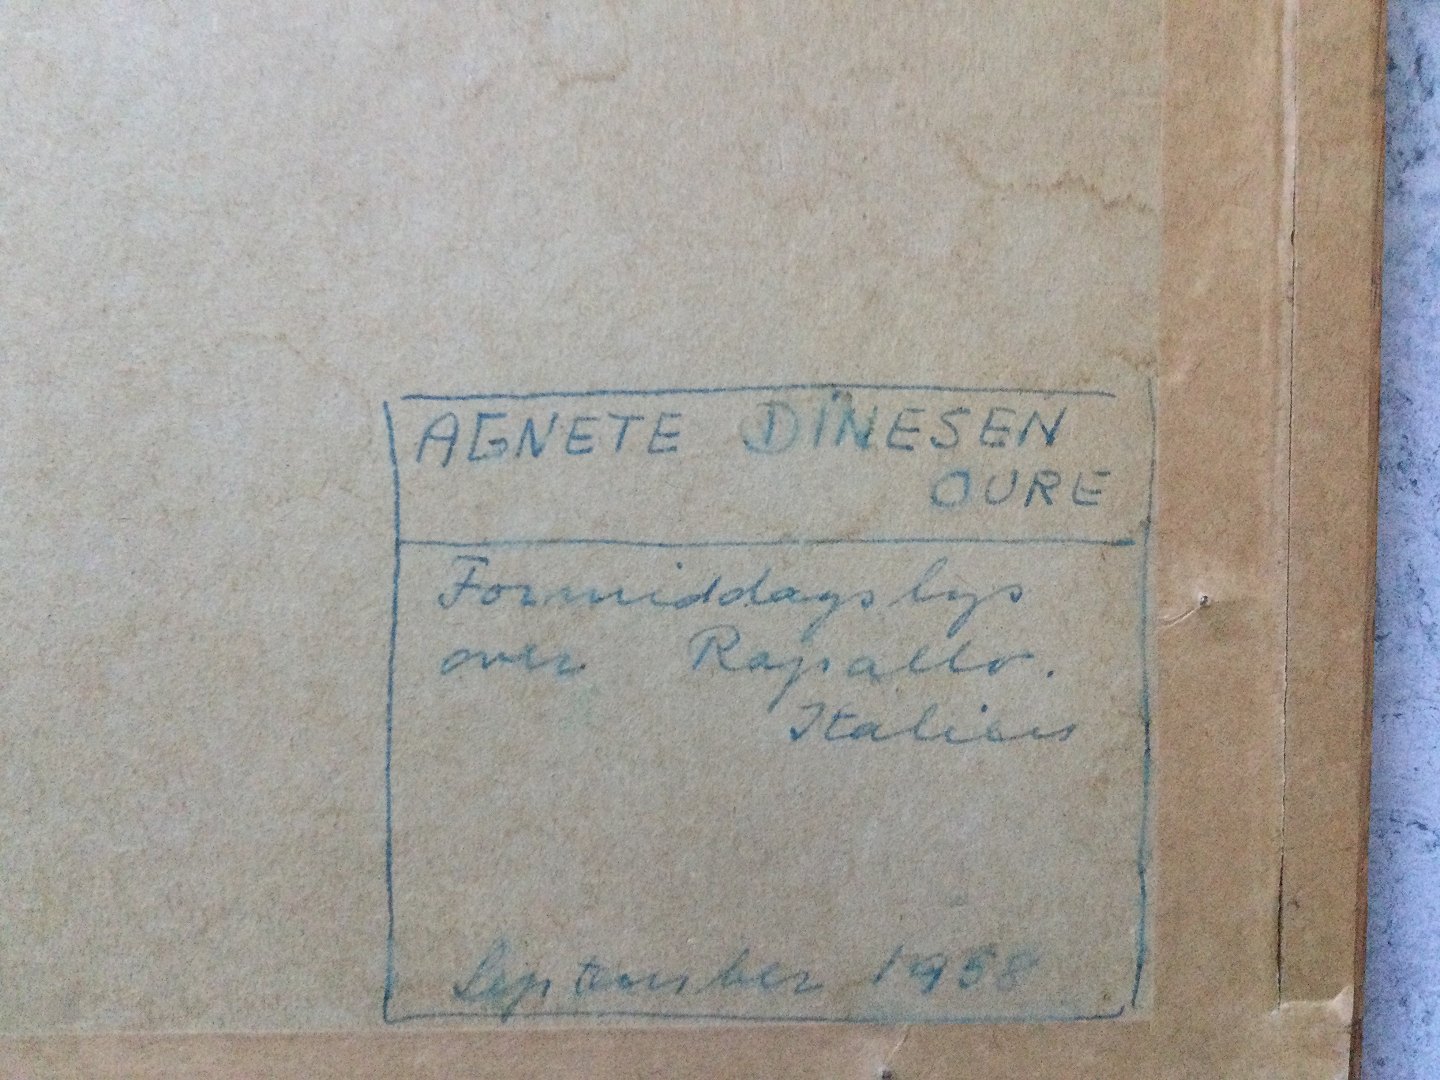 AGNETE DINESEN
OURE
Formiddagslys
over Rapallo.
Italien
September 1958